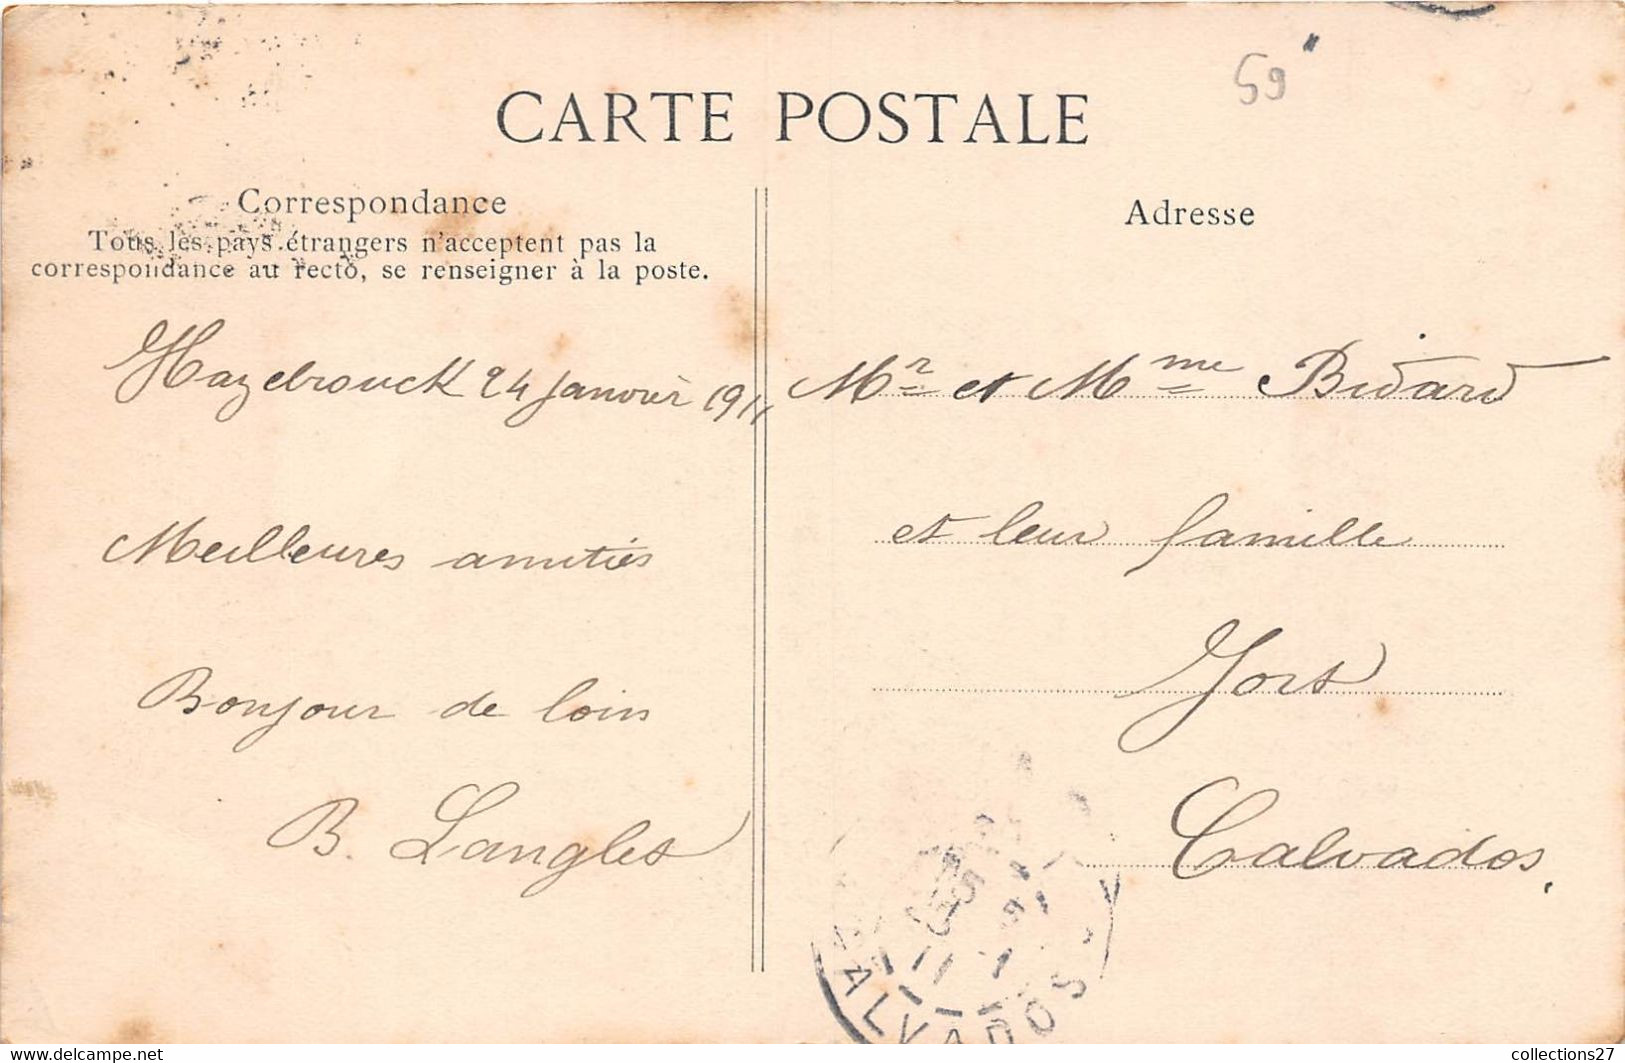 59
CARTE POSTALE
Correspondance
Tous les pays étrangers n'acceptent pas la
correspondance au recto, se renseigner à la poste.
Hazebrouck 24 Janvier 1911
Meilleures amitiés
Bonjour de loin
B. Langlet
Adresse
Mr et Mme Bidard
et leur famille
Jort
Calvados.
CALVADOS
www.delcampe.net
collections27